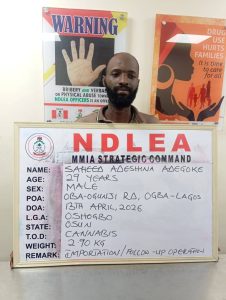 WARNING
BRIBERY AND VERBAL
OR PHYSICAL ABUSE TOWARDS
NDLEA OFFICERS IS AN
DRUG
USE
HURTS
FAMILIES
It is time
to care
for all
NDLEA
MMIA STRATEGIC COMMAND
NAME: SAHEED ADESHINA ADEGOKE
AGE: 29 YEARS
SEX: MALE
POA: OBA-OGUNJI RD, OGBA-LAGOS
DOA: 13TH APRIL, 2026
L.G.A: OSHOGBO
STATE: OSUN
T.O.D: CANNABIS
WEIGHT: 2.90 KG
REMARK: IMPORTATION/FOLLOW-UP OPERATION